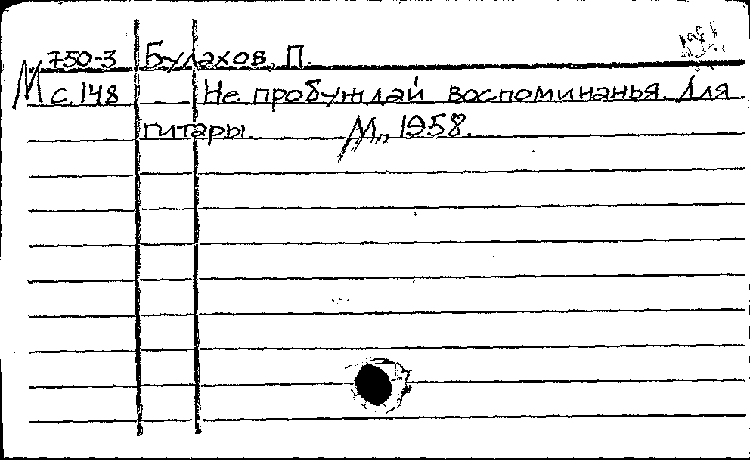 750-3 Булахов, П.
М с. 148 Не пробуждай воспоминанья. Для
гитары. М., 1958.